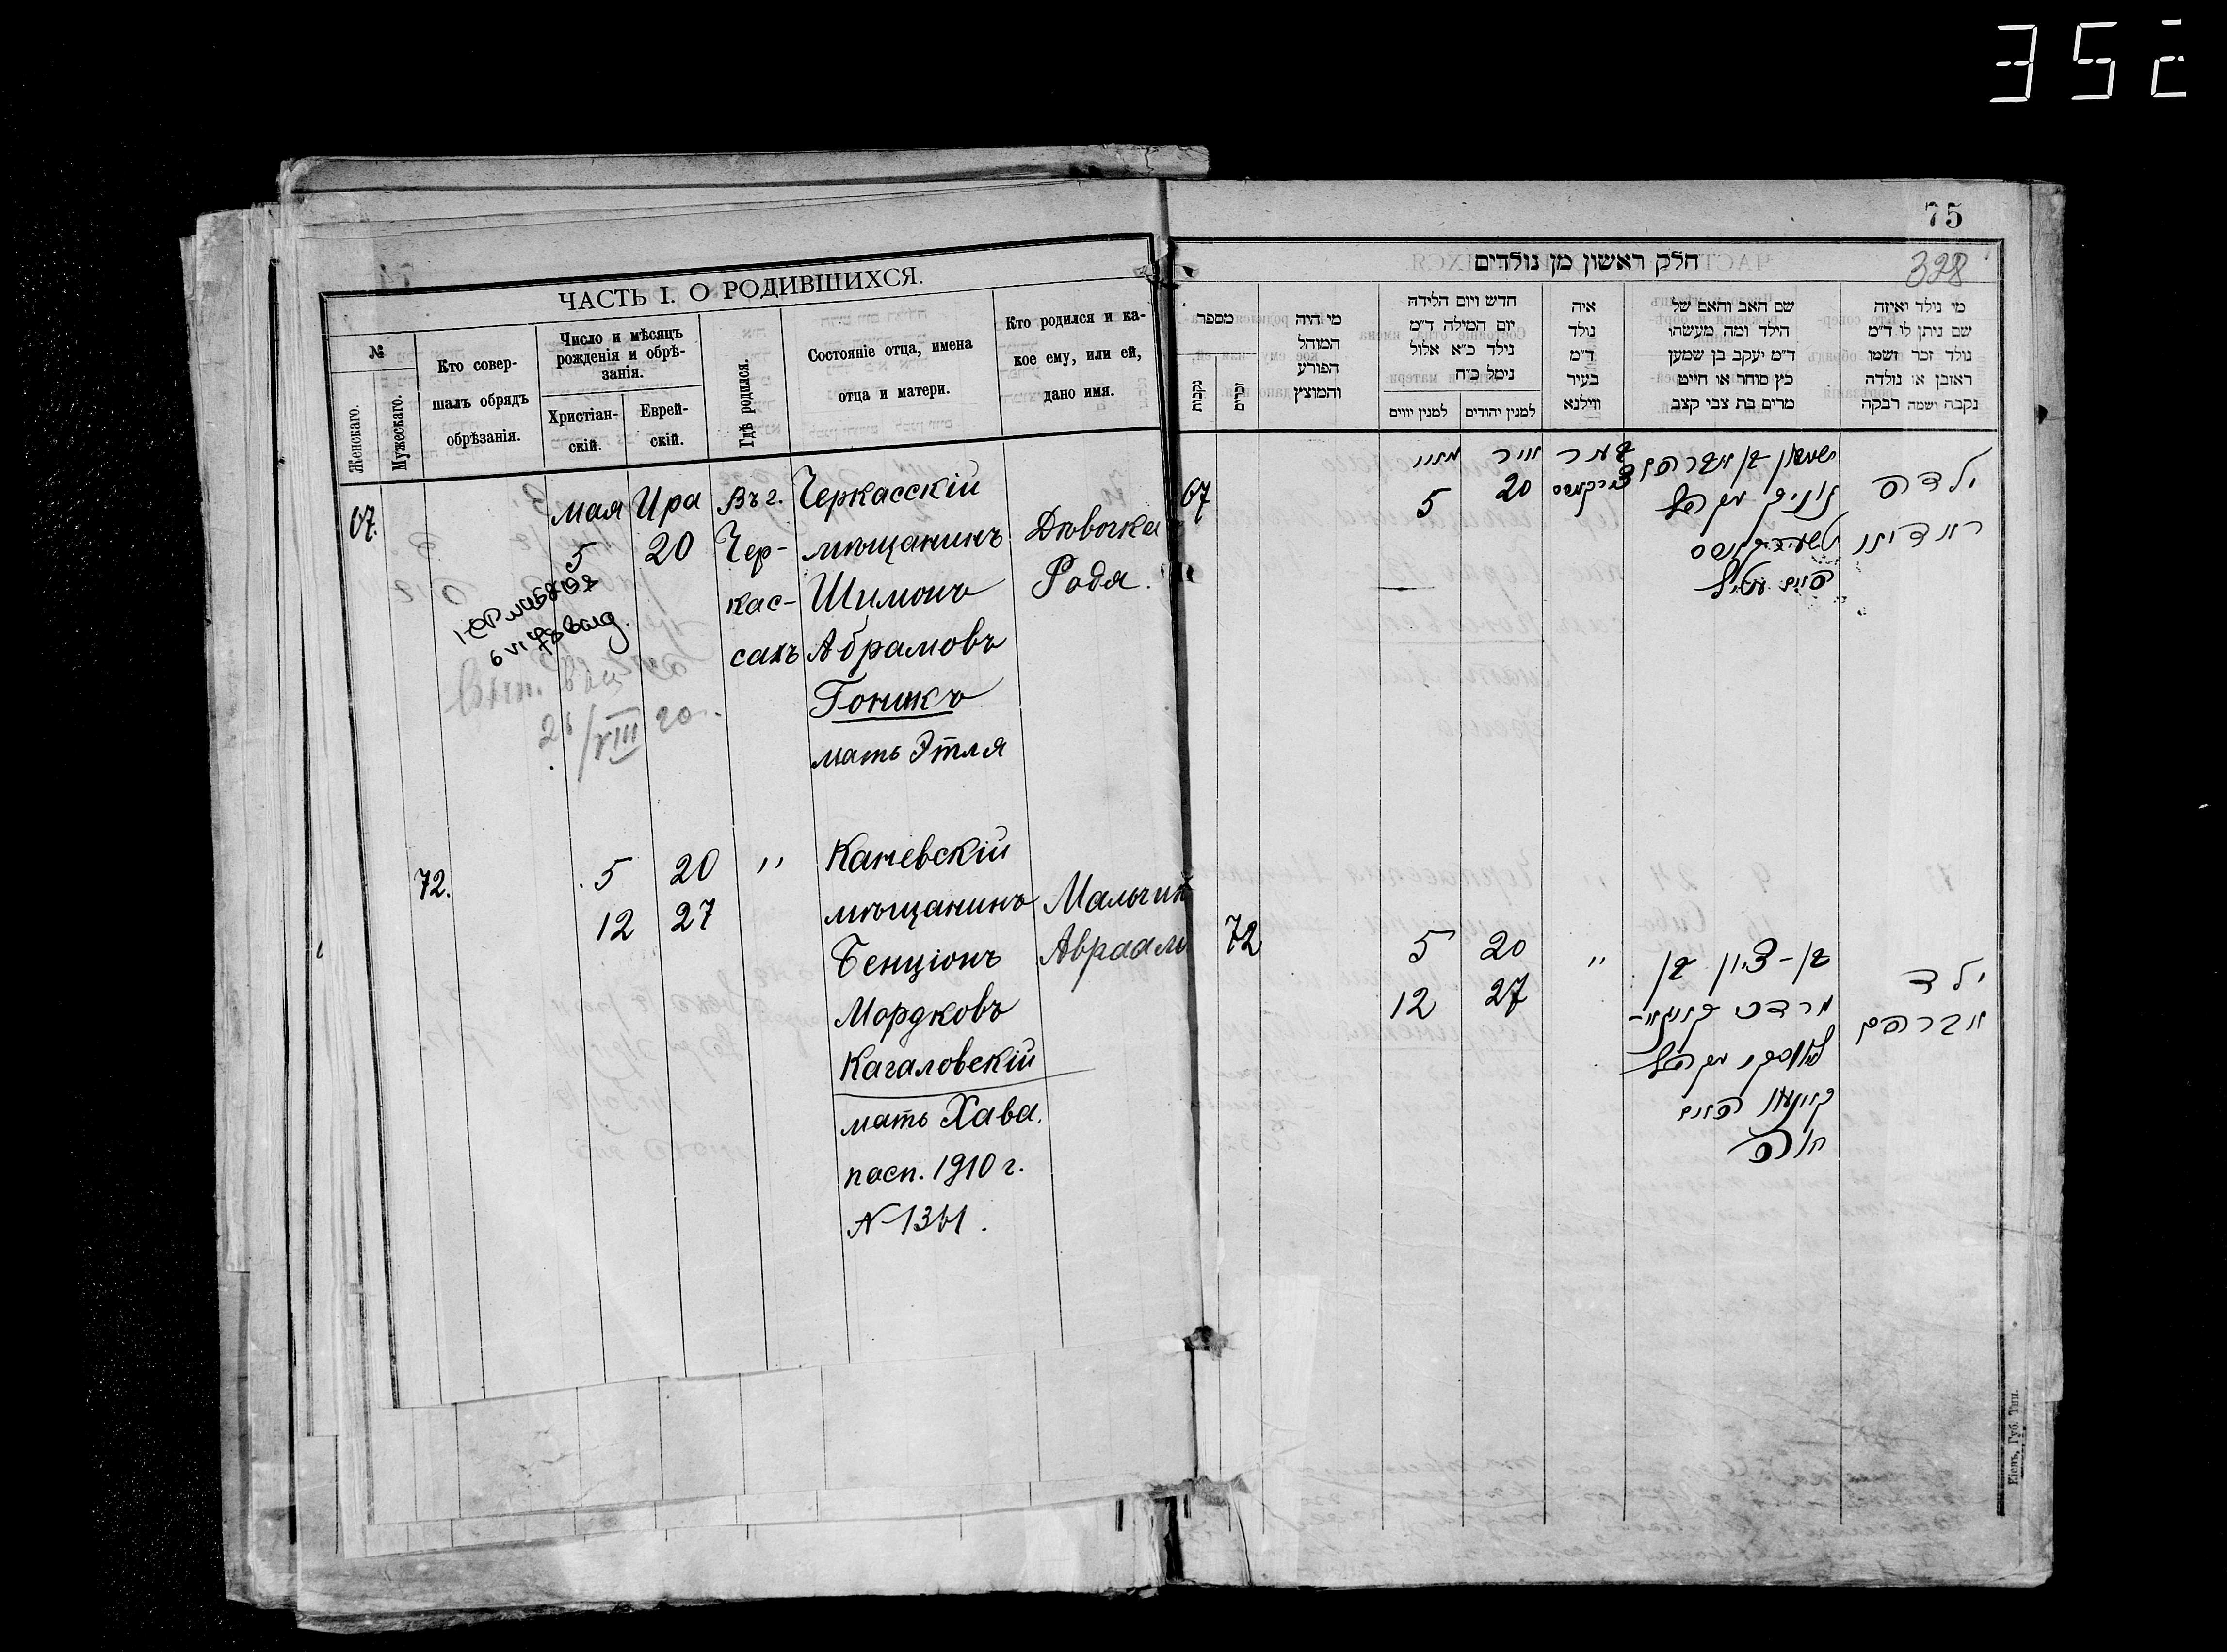 352
75
328
ЧАСТЬ I. О РОДИВШИХСЯ.
№
Женскаго.
Мужескаго.
Кто совер-
шалъ обрядъ
обрѣзанія.
Число и мѣсяцъ
рожденія и обрѣ-
занія.
Христіан-
скій.
Еврей-
скій.
Гдѣ родился.
Состояніе отца, имена
отца и матери.
Кто родился и ка-
кое ему, или ей,
дано имя.
67.
мая
5
Ира
20
Въ г.
Чер-
кас-
сахъ
Черкасскій
мѣщанинъ
Шимонъ
Абрамовъ
Гоникъ
мать Этля
Дѣвочка
Родя.
Вып.
26/VIII 20
72.
5
12
20
27
"
Каневскій
мѣщанинъ
Бенціонъ
Мордковъ
Кагаловскій
мать Хава.
пасп. 1910 г.
Мальчик
Авраам
חלק ראשון מן נולדים
מספר
נקבות
זכרים
מי היה
המוהל
הפורע
והמוצץ
חדש ויום הלידה
יום המילה ד״מ
נילד כ״א אלול
נימל כ״ח
למנין יווים
למנין יהודים
איה
נולד
ד״מ
בעיר
ווילנא
שם האב והאם של
הילד ומה מעשהו
ד״מ יעקב בן שמען
כץ סוחר או חייט
מרים בת צבי קצב
מי נולד ואיזה
שם ניתן לו ד״מ
נולד זכר ושמו
ראובן או נולדה
נקבה ושמה רבקה
67
מאיי
5
אייר
20
שמעון בן אברהם
גוניק
ילדה
ראדיא
72
5
12
20
27
"
בן-ציון בן
מרדכי
חוה
ילד
אברהם
Кіевъ, Губ. Тип.